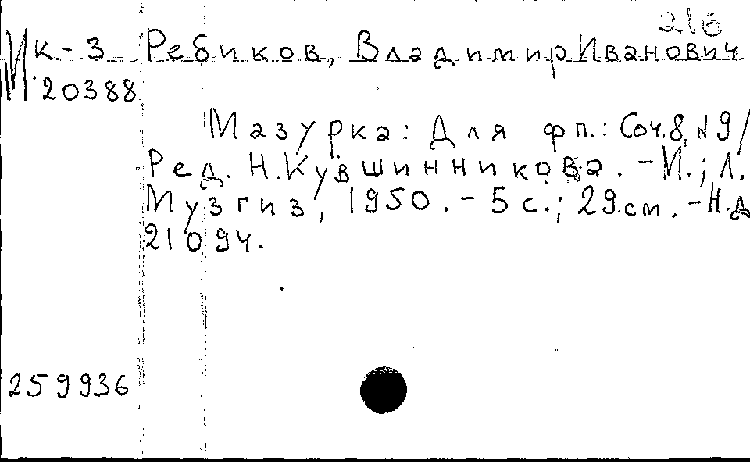 216
Мк-3 Ребиков, Владимир Иванович
20388
Мазурка: Для фп.: Соч.8, №9/
Ред. Н.Кувшинникова. - М.; Л.
Музгиз, 1950. - 5 с.; 29см. - Н.д
21094.
259936